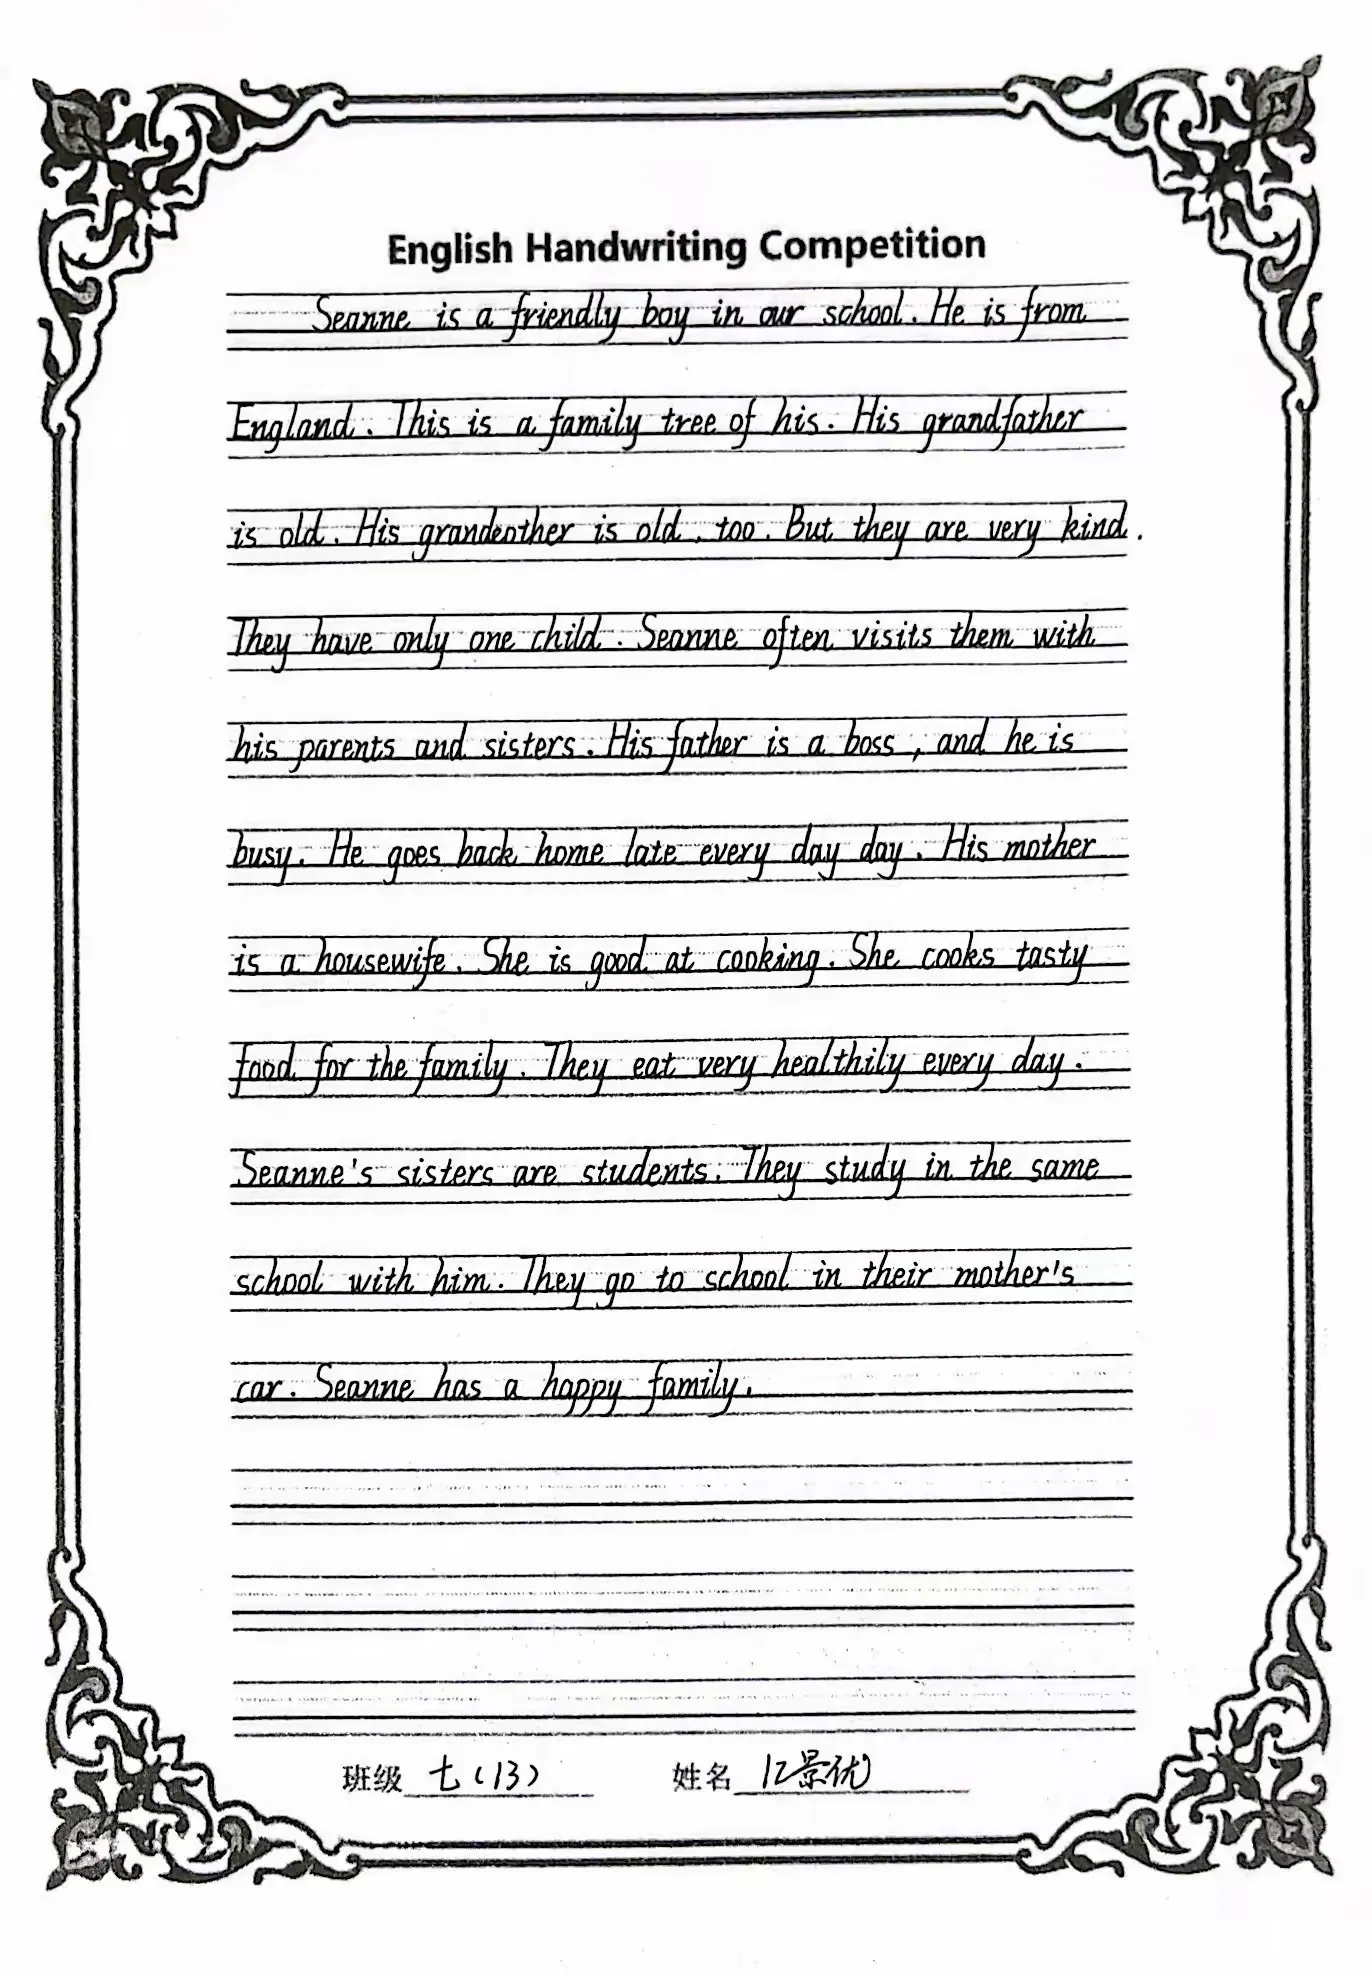 English Handwriting Competition
Seanne is a friendly boy in our school. He is from
England. This is a family tree of his. His grandfather
is old. His grandmother is old, too. But they are very kind.
They have only one child. Seanne often visits them with
his parents and sisters. His father is a boss, and he is
busy. He goes back home late every day day. His mother
is a housewife. She is good at cooking. She cooks tasty
food for the family. They eat very healthily every day.
Seanne's sisters are students. They study in the same
school with him. They go to school in their mother's
car. Seanne has a happy family.
班级 七(13) 姓名 景优